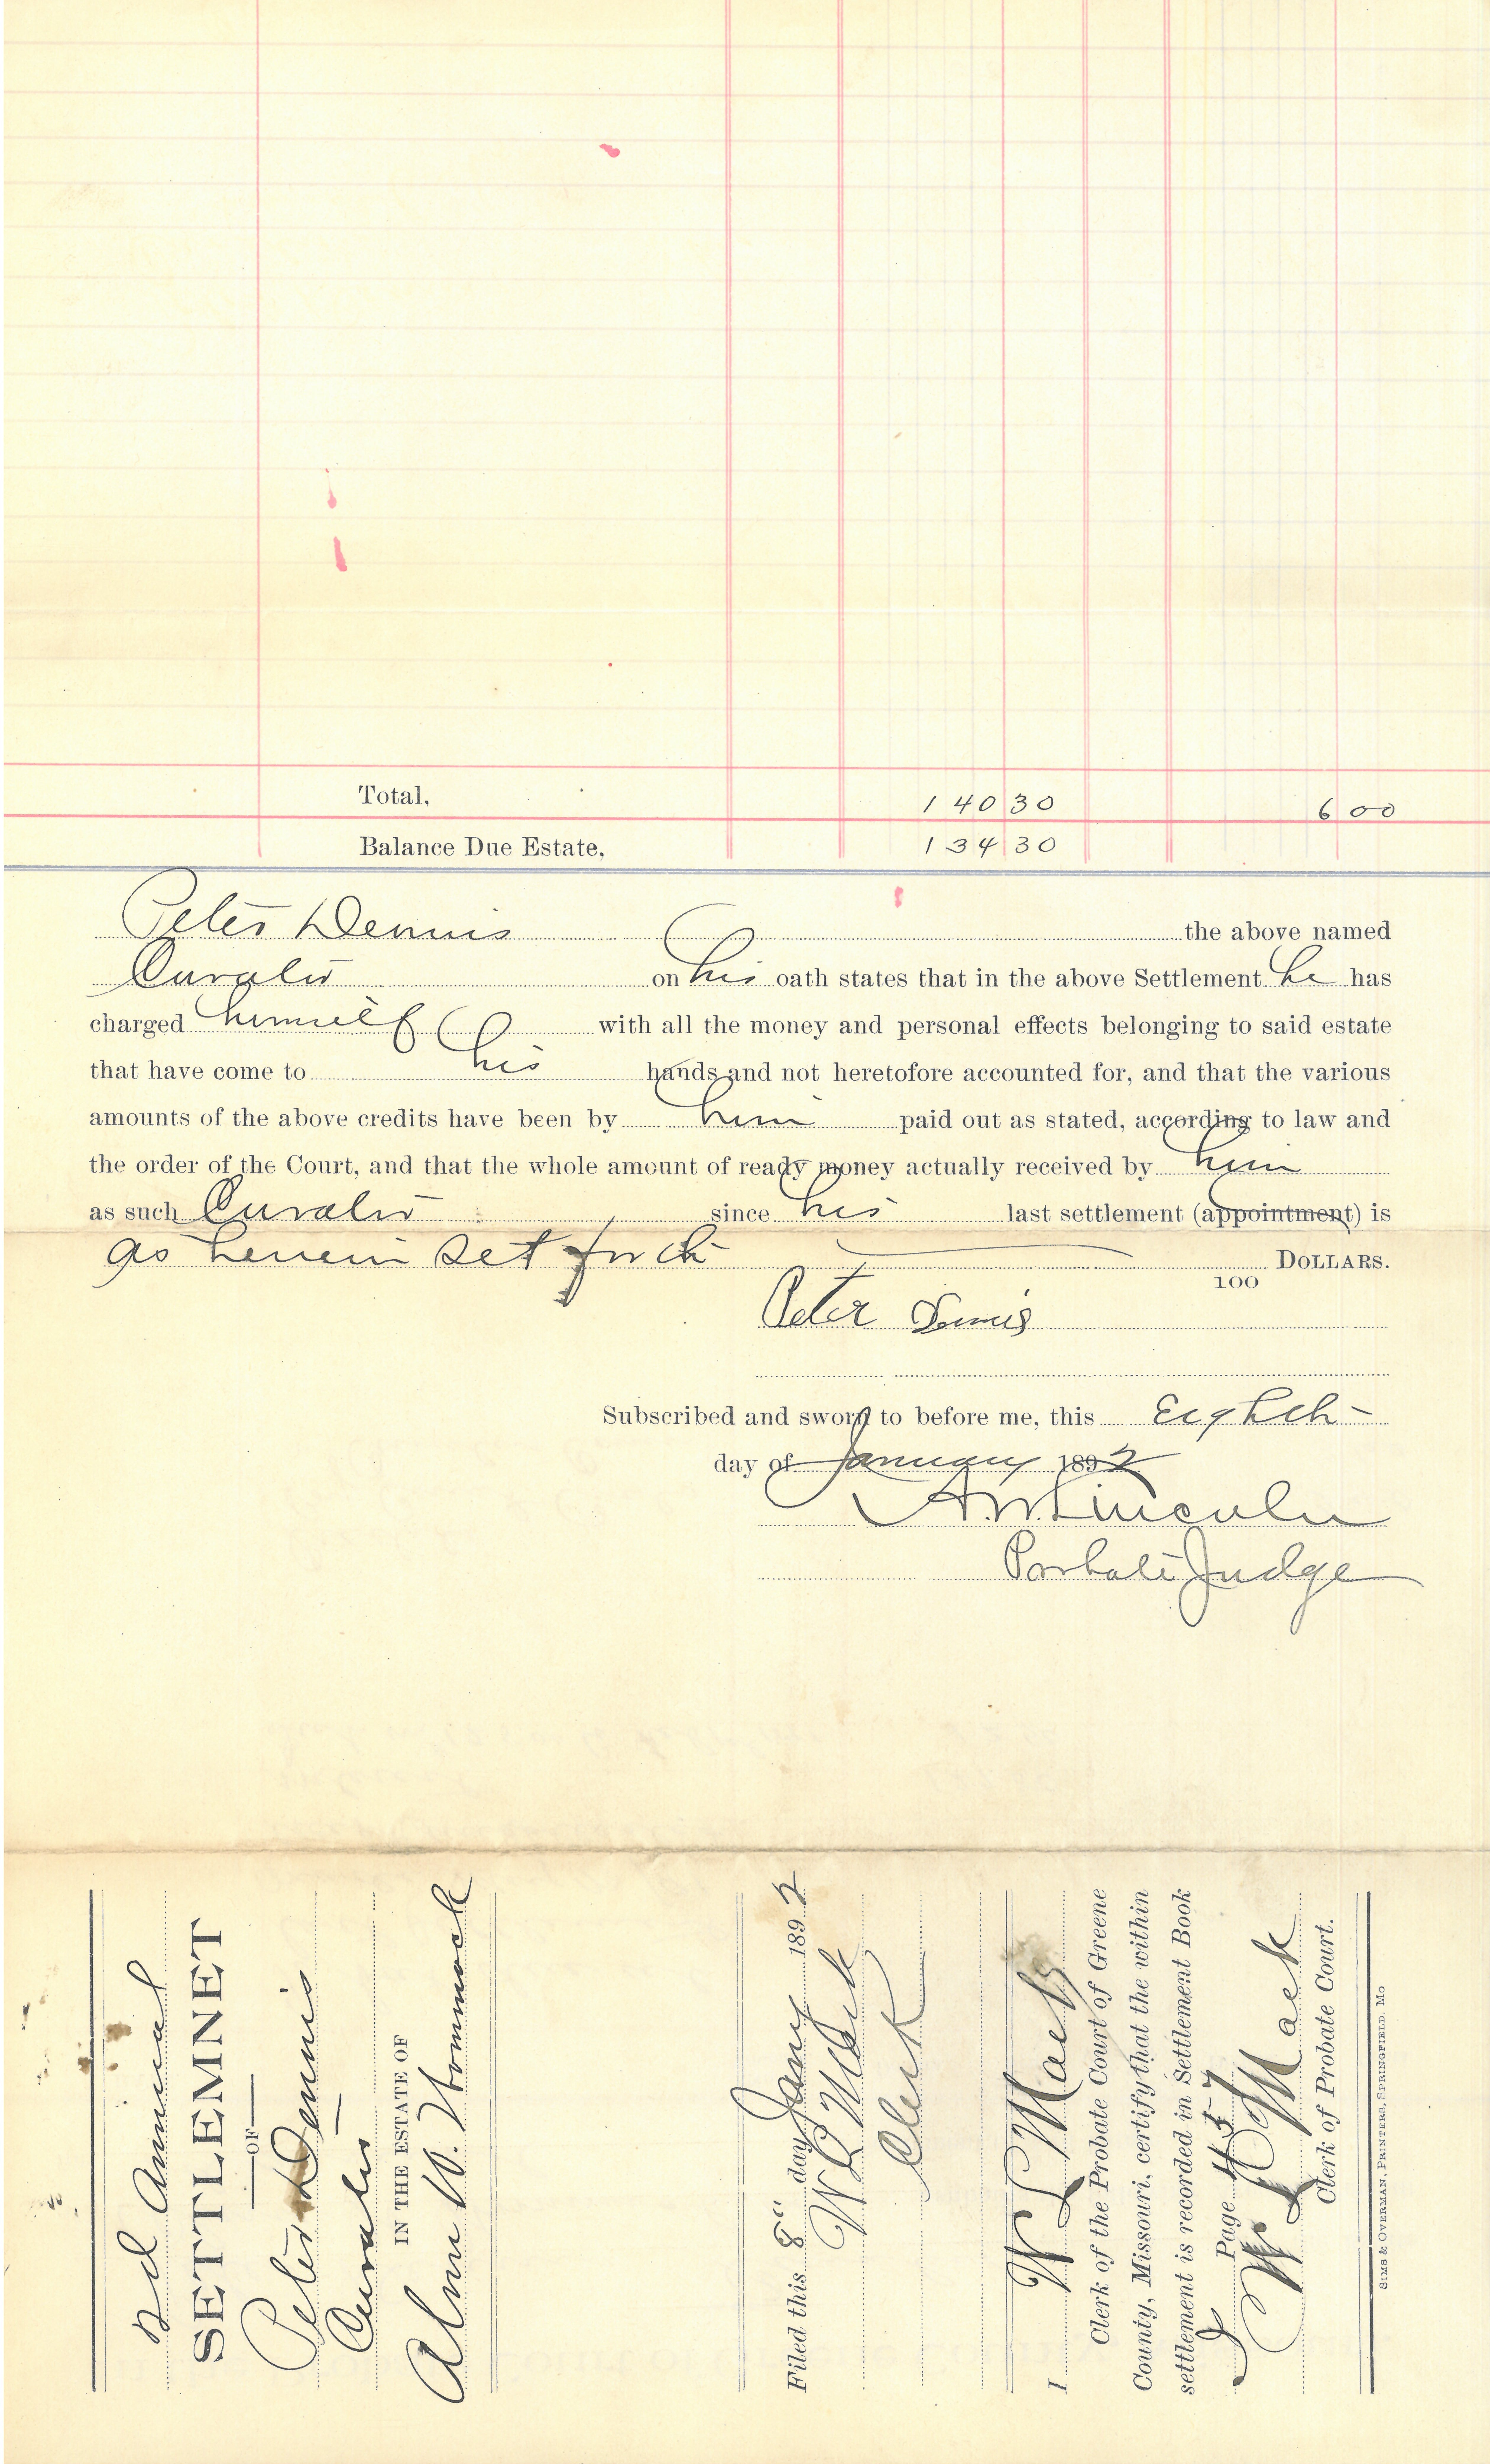 Total, 140 30 6 00
Balance Due Estate, 134 30
Peter Dennis the above named
Curator on his oath states that in the above Settlement he has
charged himself with all the money and personal effects belonging to said estate
that have come to his hands and not heretofore accounted for, and that the various
amounts of the above credits have been by him paid out as stated, according to law and
the order of the Court, and that the whole amount of ready money actually received by him
as such Curator since his last settlement (appointment) is
as herein set forth DOLLARS.
100
Peter Dennis
Subscribed and sworn to before me, this Eighth
day of January 1892
A. W. Lincoln
Probate Judge
2d Annual
SETTLEMNET
OF
Peter Dennis
Curator
IN THE ESTATE OF
W. Wommack
Filed this 8" day Jany 1892
W L Mack
Clerk
I W L Mack
Clerk of the Probate Court of Greene
County, Missouri, certify that the within
settlement is recorded in Settlement Book
J Page 457
W L Mack
Clerk of Probate Court.
SIMS & OVERMAN, PRINTERS, SPRINGFIELD, MO